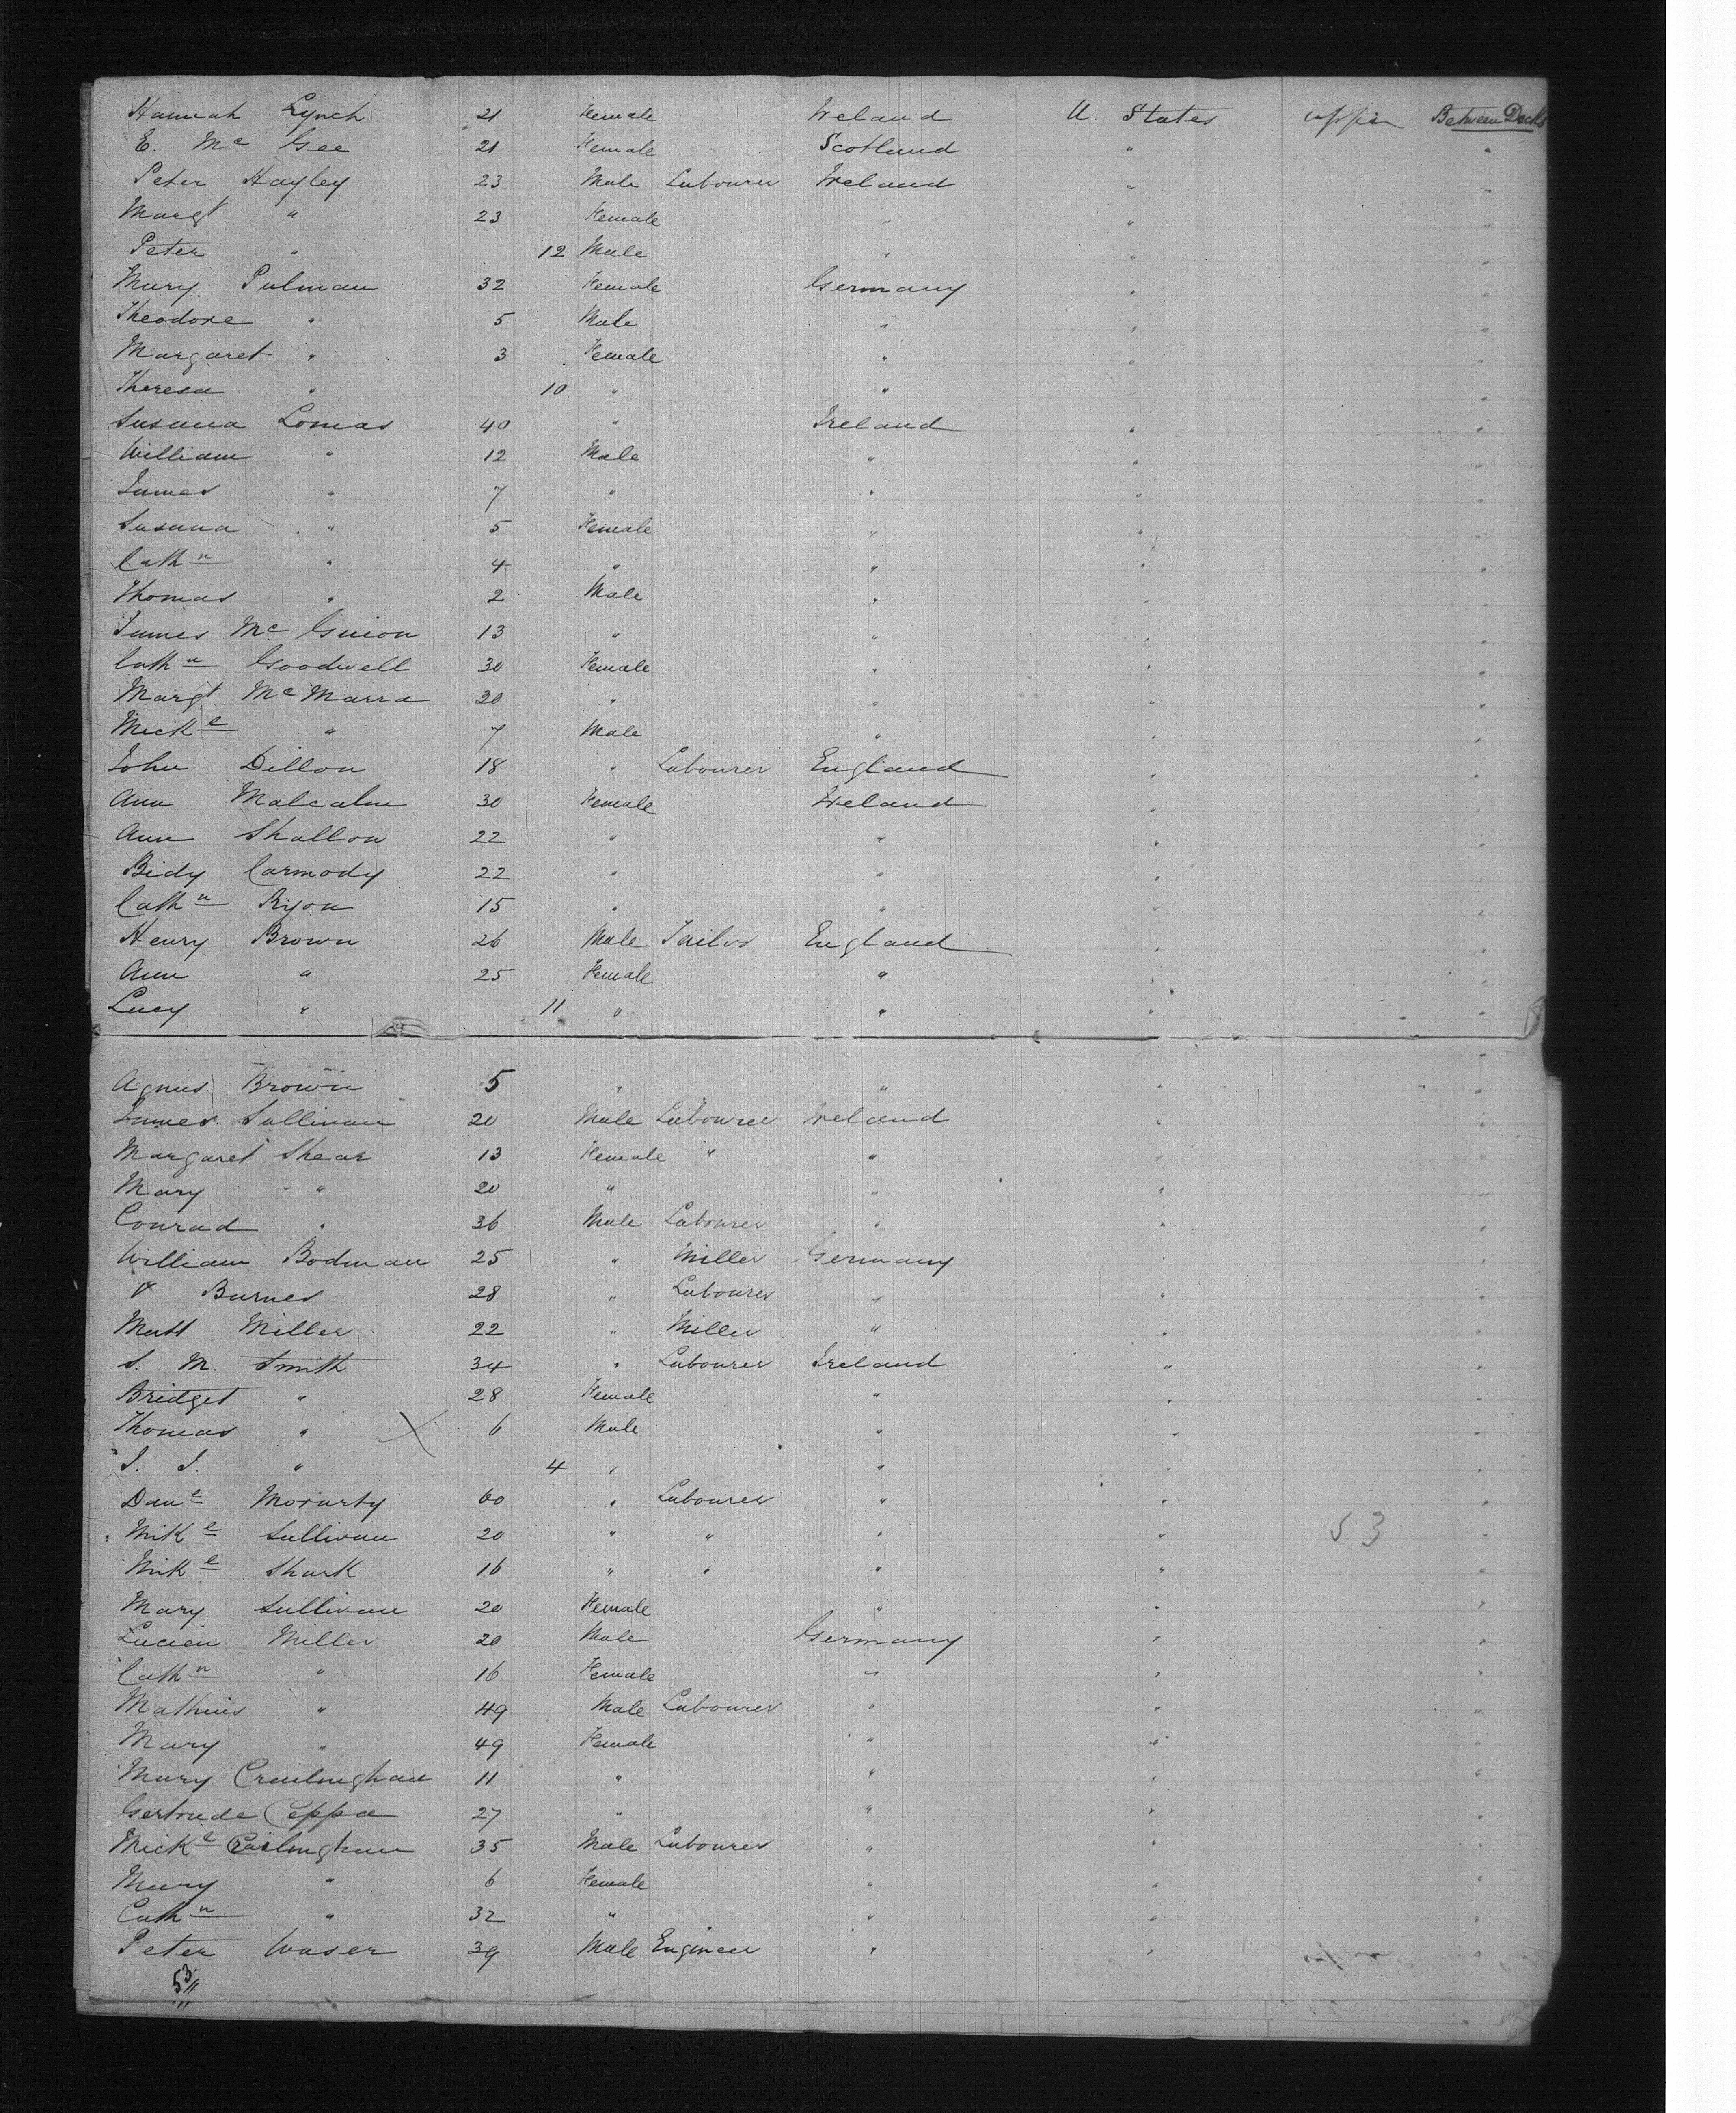 Hannah Lynch 21 Female Ireland U. States upper Between Decks
E. Mc Gee 21 Female Scotland " "
Peter Hayley 23 Male Labourer Ireland " "
Margt " 23 Female " " "
Peter " 12 Male " " "
Mary Pulman 32 Female Germany " "
Theodore " 5 Male " " "
Margaret " 3 Female " " "
Theresa " 10 " " " "
Susana Lomas 40 " Ireland " "
William " 12 Male " " "
James " 7 " " " "
Susana " 5 Female " " "
Cathn " 4 " " " "
Thomas " 2 Male " " "
James Mc Guion 13 " " " "
Cathn Goodwell 30 Female " " "
Margt McMarra 20 " " " "
Micke " 7 Male " " "
John Dillon 18 " Labourer England " "
Ann Malcalm 30 Female Ireland " "
Ann Shallow 22 " " " "
Bidy Carmody 22 " " " "
Cathn Ryon 15 " " " "
Henry Brown 26 Male Tailor England " "
Ann " 25 Female " " "
Lucy " 11 " " " "
Agnus Brown 5 " " " "
James Sullivan 20 Male Labourer Ireland " "
Margaret Shear 13 Female " " " "
Mary " 20 " " " "
Conrad " 36 Male Labourer " " "
William Bodman 25 " Miller Germany " "
Burnes 28 " Labourer " " "
Matt Miller 22 " Miller " " "
S. M. Smith 34 " Labourer Ireland " "
Bridget " 28 Female " " "
Thomas " X 6 Male " " "
J. J. " 4 " " " "
Danl Moriarty 60 " Labourer " " "
Mike Sullivan 20 " " " " 53 "
Mike Shark 16 " " " " "
Mary Sullivan 20 Female " " "
Lucien Miller 20 Male Germany " "
Cathn " 16 Female " " "
Mathuis " 49 Male Labourer " " "
Mary " 49 Female " " "
Mary 11 " " " "
Gertrude Ceppa 27 " " " "
Micke Cailingham 35 Male Labourer " " "
Mary " 6 Female " " "
Cathn " 32 " " " "
Peter Waser 39 Male Engineer " " "
53